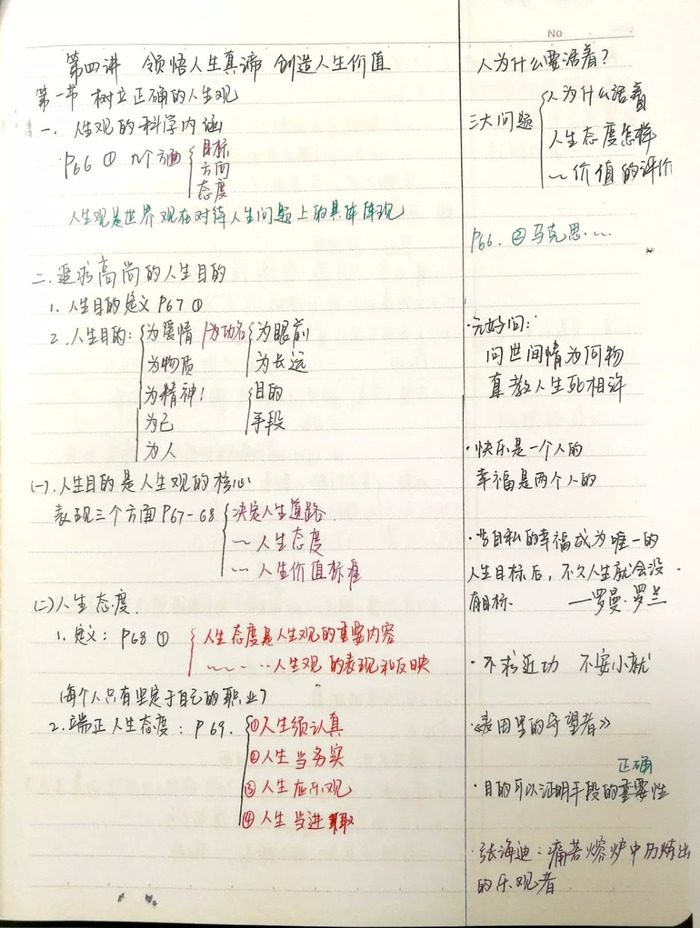 第四讲 领悟人生真谛 创造人生价值
第一节 树立正确的人生观
一、人生观的科学内涵
P66 ① 几个方面
目标
方向
态度
人生观是世界观在对待人生问题上的具体体现
二.追求高尚的人生目的
1.人生目的定义 P67 ①
2.人生目的:
为爱情 为功名
为物质
为精神!
为己
为人
为眼前
为长远
目的
手段
(一).人生目的是人生观的核心
表现三个方面 P67-68
决定人生道路.
~ 人生态度
~ 人生价值标准
(二)人生态度.
1.定义: P68 ①
人生态度是人生观的重要内容
~ ~ ·· 人生观的表现和反映
(每个人只有坚定于自己的职业)
2.端正人生态度: P69.
①人生须认真
②人生当务实
③人生应乐观
④人生当进取
No
人为什么要活着?
三大问题
人为什么活着
人生态度怎样
~ 价值的评价
P66. ②马克思……
·元好问:
问世间情为何物
直教人生死相许
·快乐是一个人的
幸福是两个人的
·当自私的幸福成为唯一的
人生目标后,不久人生就会没
有目标. ——罗曼·罗兰
·不求近功 不安小就
·《麦田里的守望者》
正确
·目的可以证明手段的重要性
·张海迪:痛苦熔炉中历炼出
的乐观者